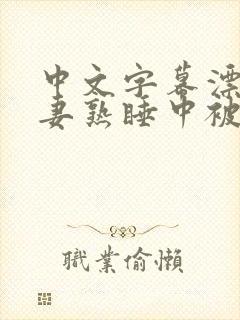 中文字幕漂
妻熟睡中被
職業偷懶